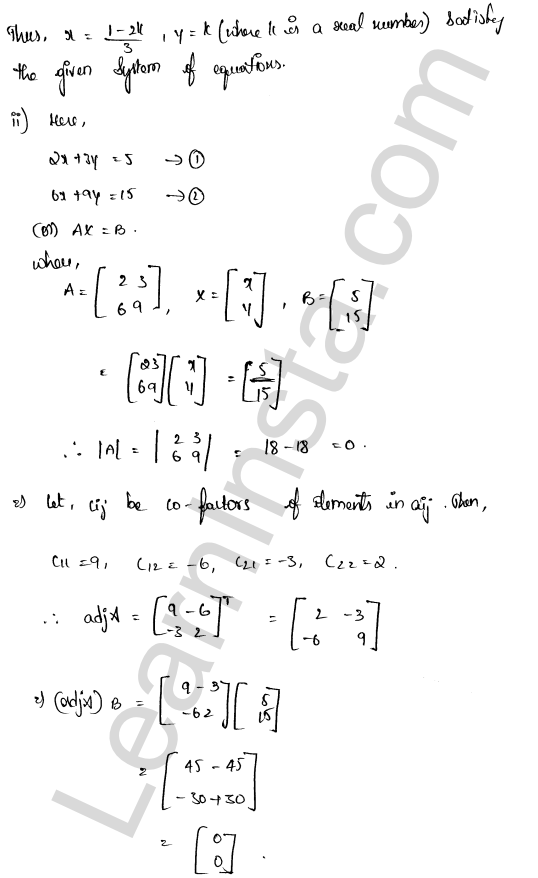 Thus, x = (1-2k)/3 , y = k (where k is a real number) satisfy
the given system of equations.
ii) Here,
2x+3y = 5 → ①
6x+9y = 15 → ②
(or) AX = B.
where,
A = [2 3; 6 9], X = [x; y], B = [5; 15]
[2 3; 6 9] [x; y] = [5; 15]
∴ |A| = |2 3; 6 9| = 18-18 = 0.
Let, cij be co-factors of elements in aij. Then,
C11 = 9, C12 = -6, C21 = -3, C22 = 2.
∴ adjA = [9 -6; -3 2]ᵀ = [2 -3; -6 9]
(adjA) B = [9 -3; -6 2] [5; 15]
= [45 - 45; -30+30]
= [0; 0].
LearnInsta.com